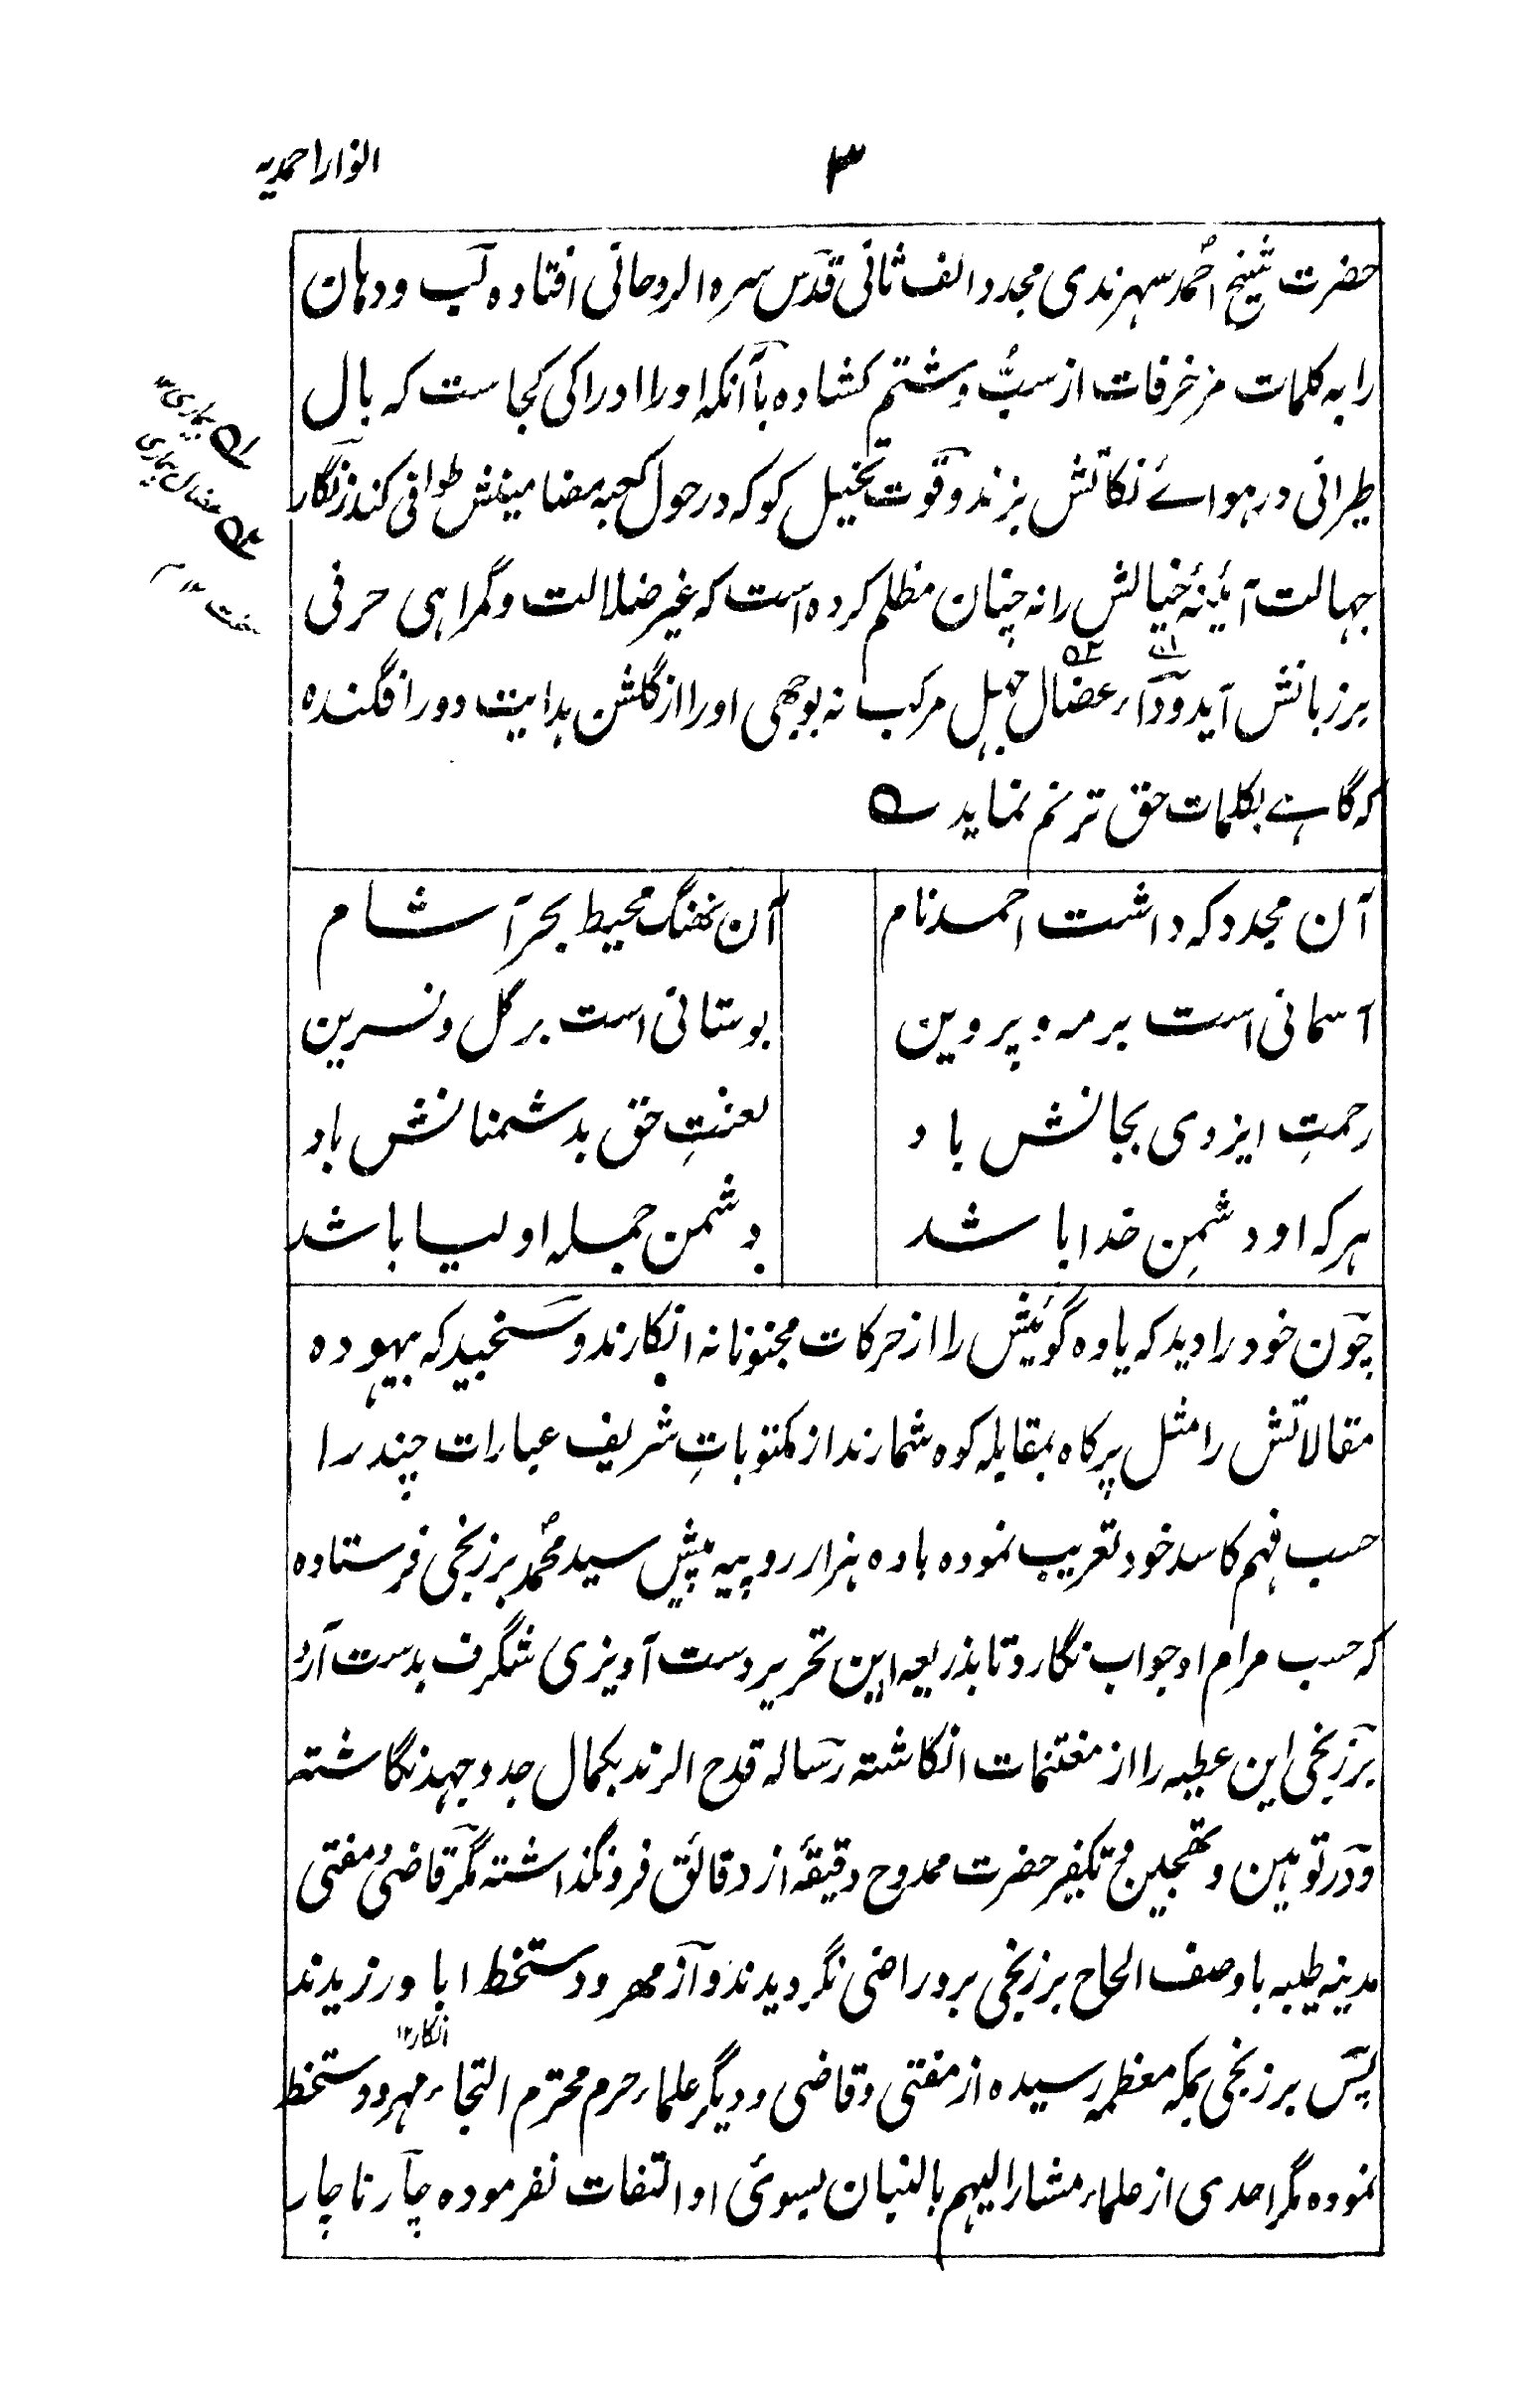 ۳
انوار احمدیہ
حضرت شیخ احمد سہرندی مجدد الف ثانی قدس سرہ الروحانی افتادہ لب و دہان
را بہ کلمات مزخرفات از سبُّ و شتم کشادہ باآنکہ او را ادراکی کجاست کہ بال
طیرانی در ہوائے نکاتش بزند و قوت تخیل کو کہ در حول کعبہ مضامینش طوافی کند زنگار
جہالت آئینۂ خیالش را نہ چنان مظلم کردہ است کہ غیر ضلالت و گمراہی حرفی
بر زبانش آید و داء عضال جہل مرکب نہ بوجہی او را از گلشن ہدایت دور افگندہ
کہ گاہے بکلمات حق ترنم نماید
آن مجدد کہ داشت احمد نام
آن نهنگ محیط بحر آشام
آسمانی است بر مہ و پروین
بوستانی است بر گل و نسرین
رحمتِ ایزدی بجانش باد
لعنتِ حق بدشمنانش باد
ہر کہ او دشمنِ خدا باشد
دشمن جملہ اولیا باشد
چون خود را دید کہ یاوہ گوئیش را از حرکات مجنونانہ انگارند و سنجید کہ بیہودہ
مقالاتش را مثل پر کاہ بمقابلہ کوہ شمارند از مکتوباتِ شریف عبارات چند را
حسب فہم کاسد خود تعریب نمودہ با دہ ہزار روپیہ پیش سید محمد برزنجی فرستادہ
کہ حسب مرام او جواب نگارد تا بذریعہ این تحریر دست آویزی شگرف بدست آرد
برزنجی این عطیہ را از مغتنمات انگاشتہ رسالہ قدح الزند بکمال جد و جہد نگاشتہ
و در توہین و تهجین و تکفیر حضرت ممدوح دقیقۂ از دقائق فرو نگذاشتہ مگر قاضی و مفتی
مدینہ طیبہ با وصف الحاح برزنجی برو راضی نگردیدند و از مهر و دستخط ابا ورزیدند
انکار ۱۲
پس برزنجی بمکہ معظمہ رسیدہ از مفتی و قاضی و دیگر علماء حرم محترم التجاء مہر و دستخط
نمودہ مگر احدی از علماء مشار الیہم بالبنان بسوئی او التفات نفرمودہ چار ناچار
۱ بیماری ۱۲
۲ عضال بیماری
سخت ۱۲